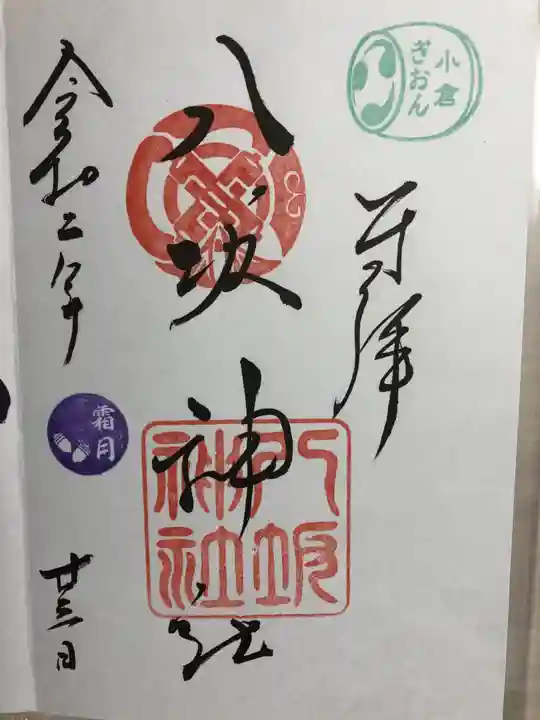 小倉
ぎおん
奉拝
八坂神社
八坂
神社
令和二年
霜月
廿三日